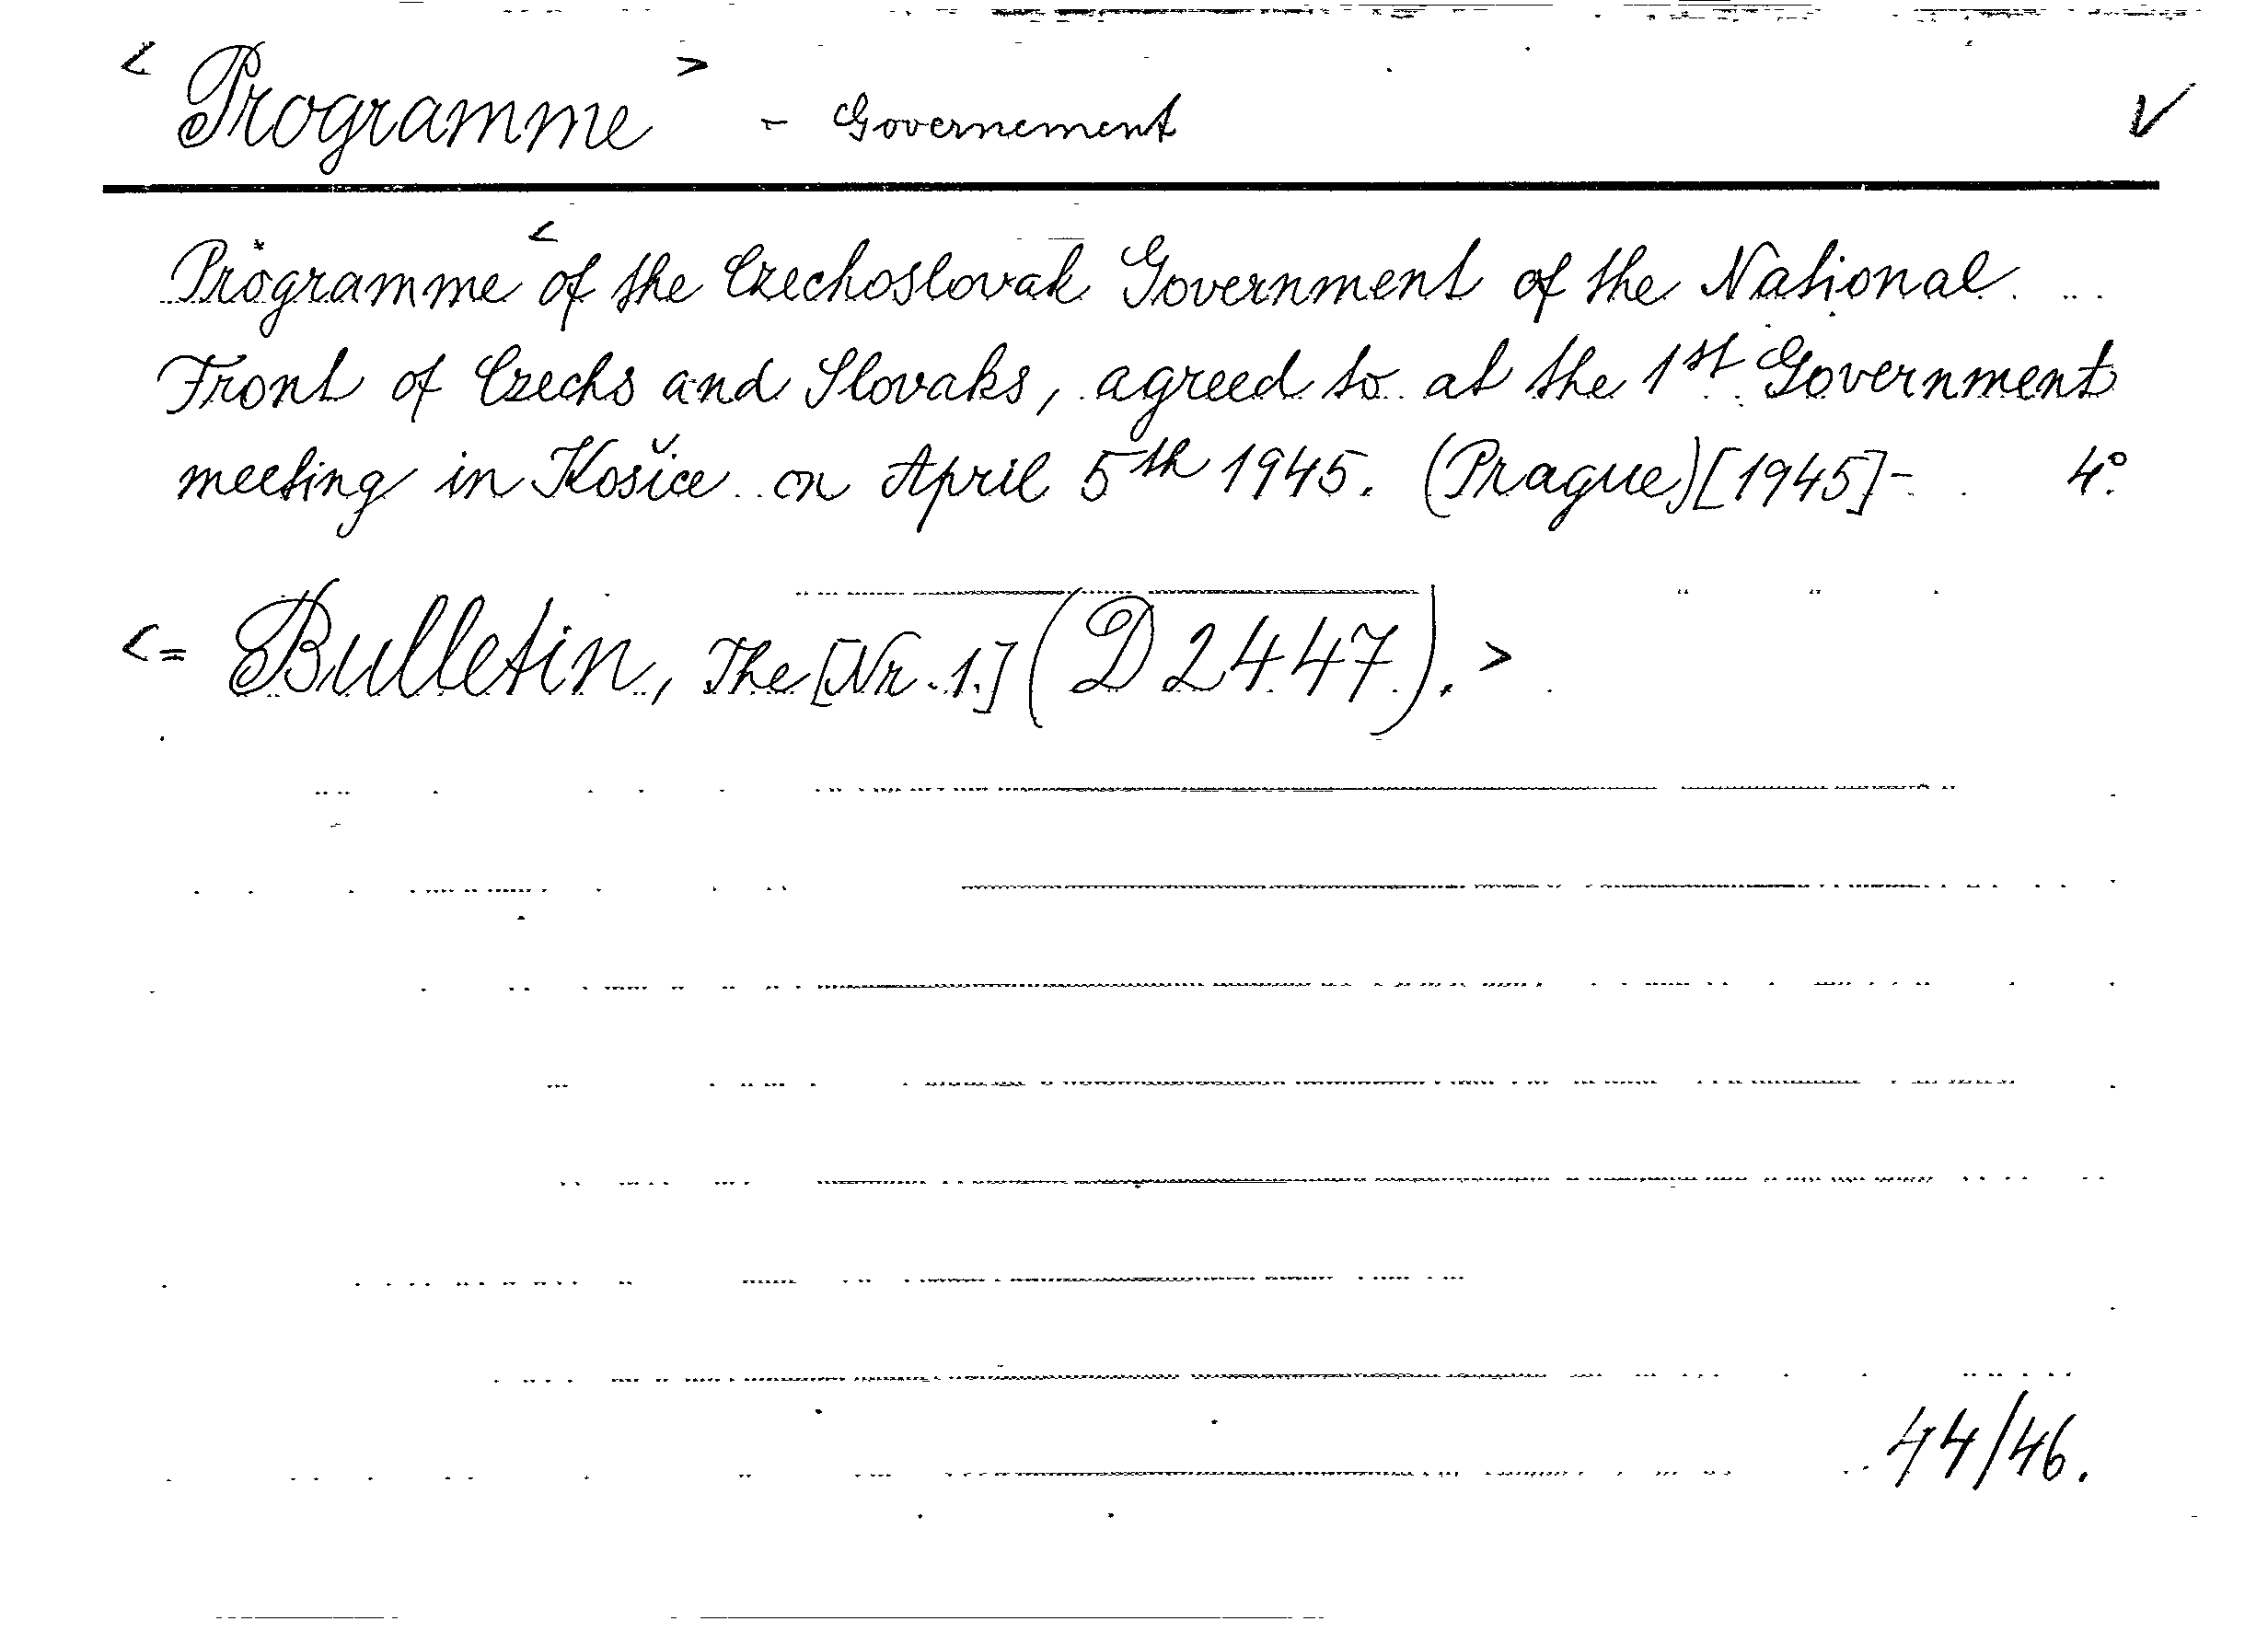 < Programme > - Governement V
Programme < of the Czechoslovak Government of the National
Front of Czechs and Slovaks, agreed to at the 1st Government
meeting in Košice on April 5th 1945. (Prague) [1945]- 4°.
<= Bulletin, The [Nr. 1.] (D 2447). >
44/46.